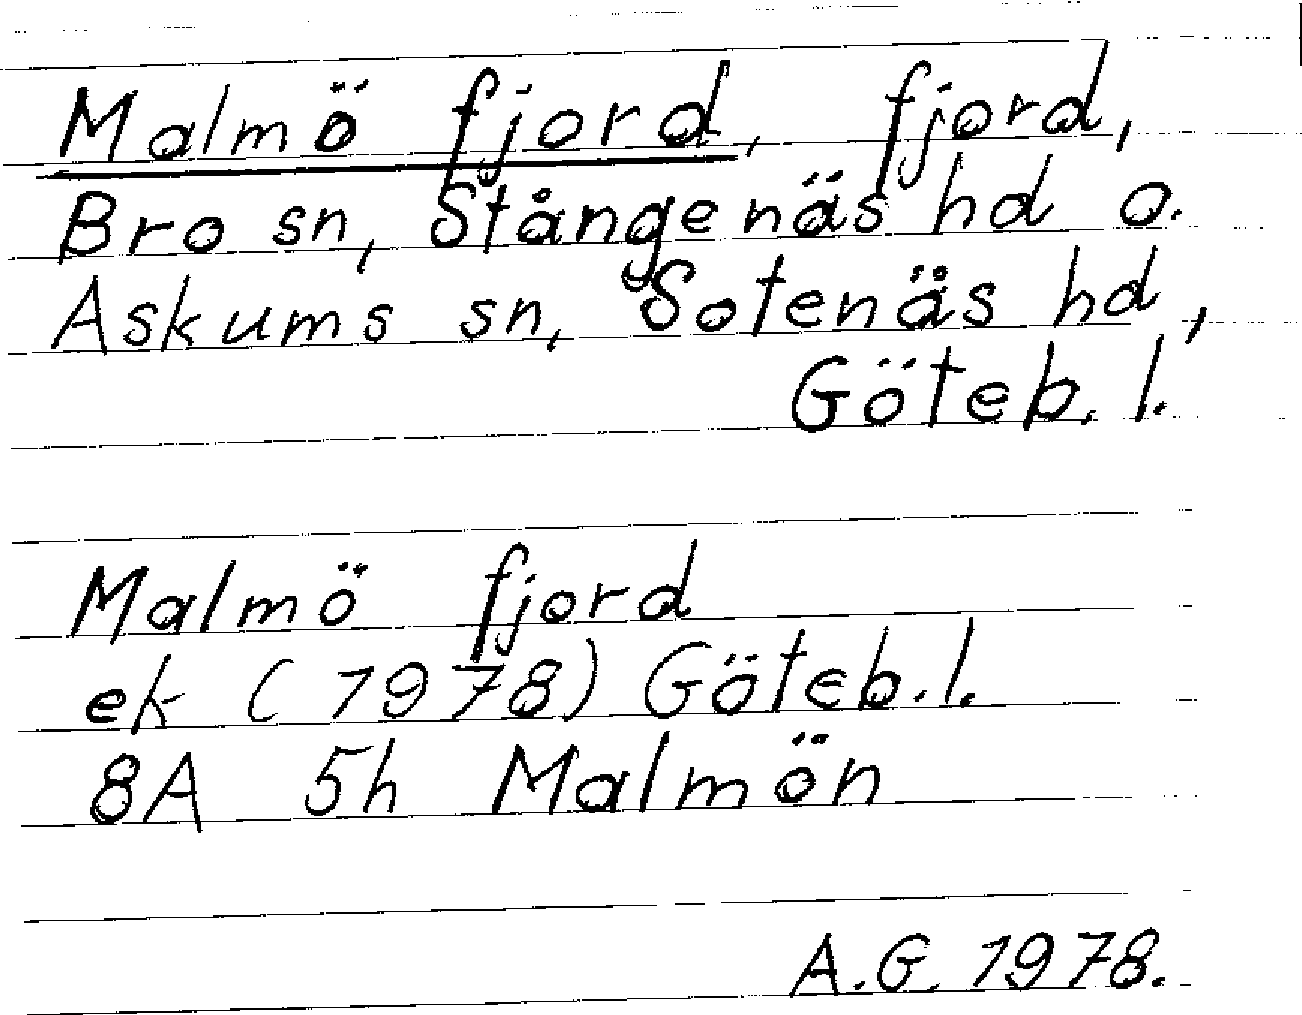 Malmö fjord, fjord,
Bro sn, Stångenäs hd o.
Askums sn, Sotenäs hd,
Göteb. l.
Malmö fjord
ek (1978) Göteb. l.
8A 5h Malmön
A.G. 1978.